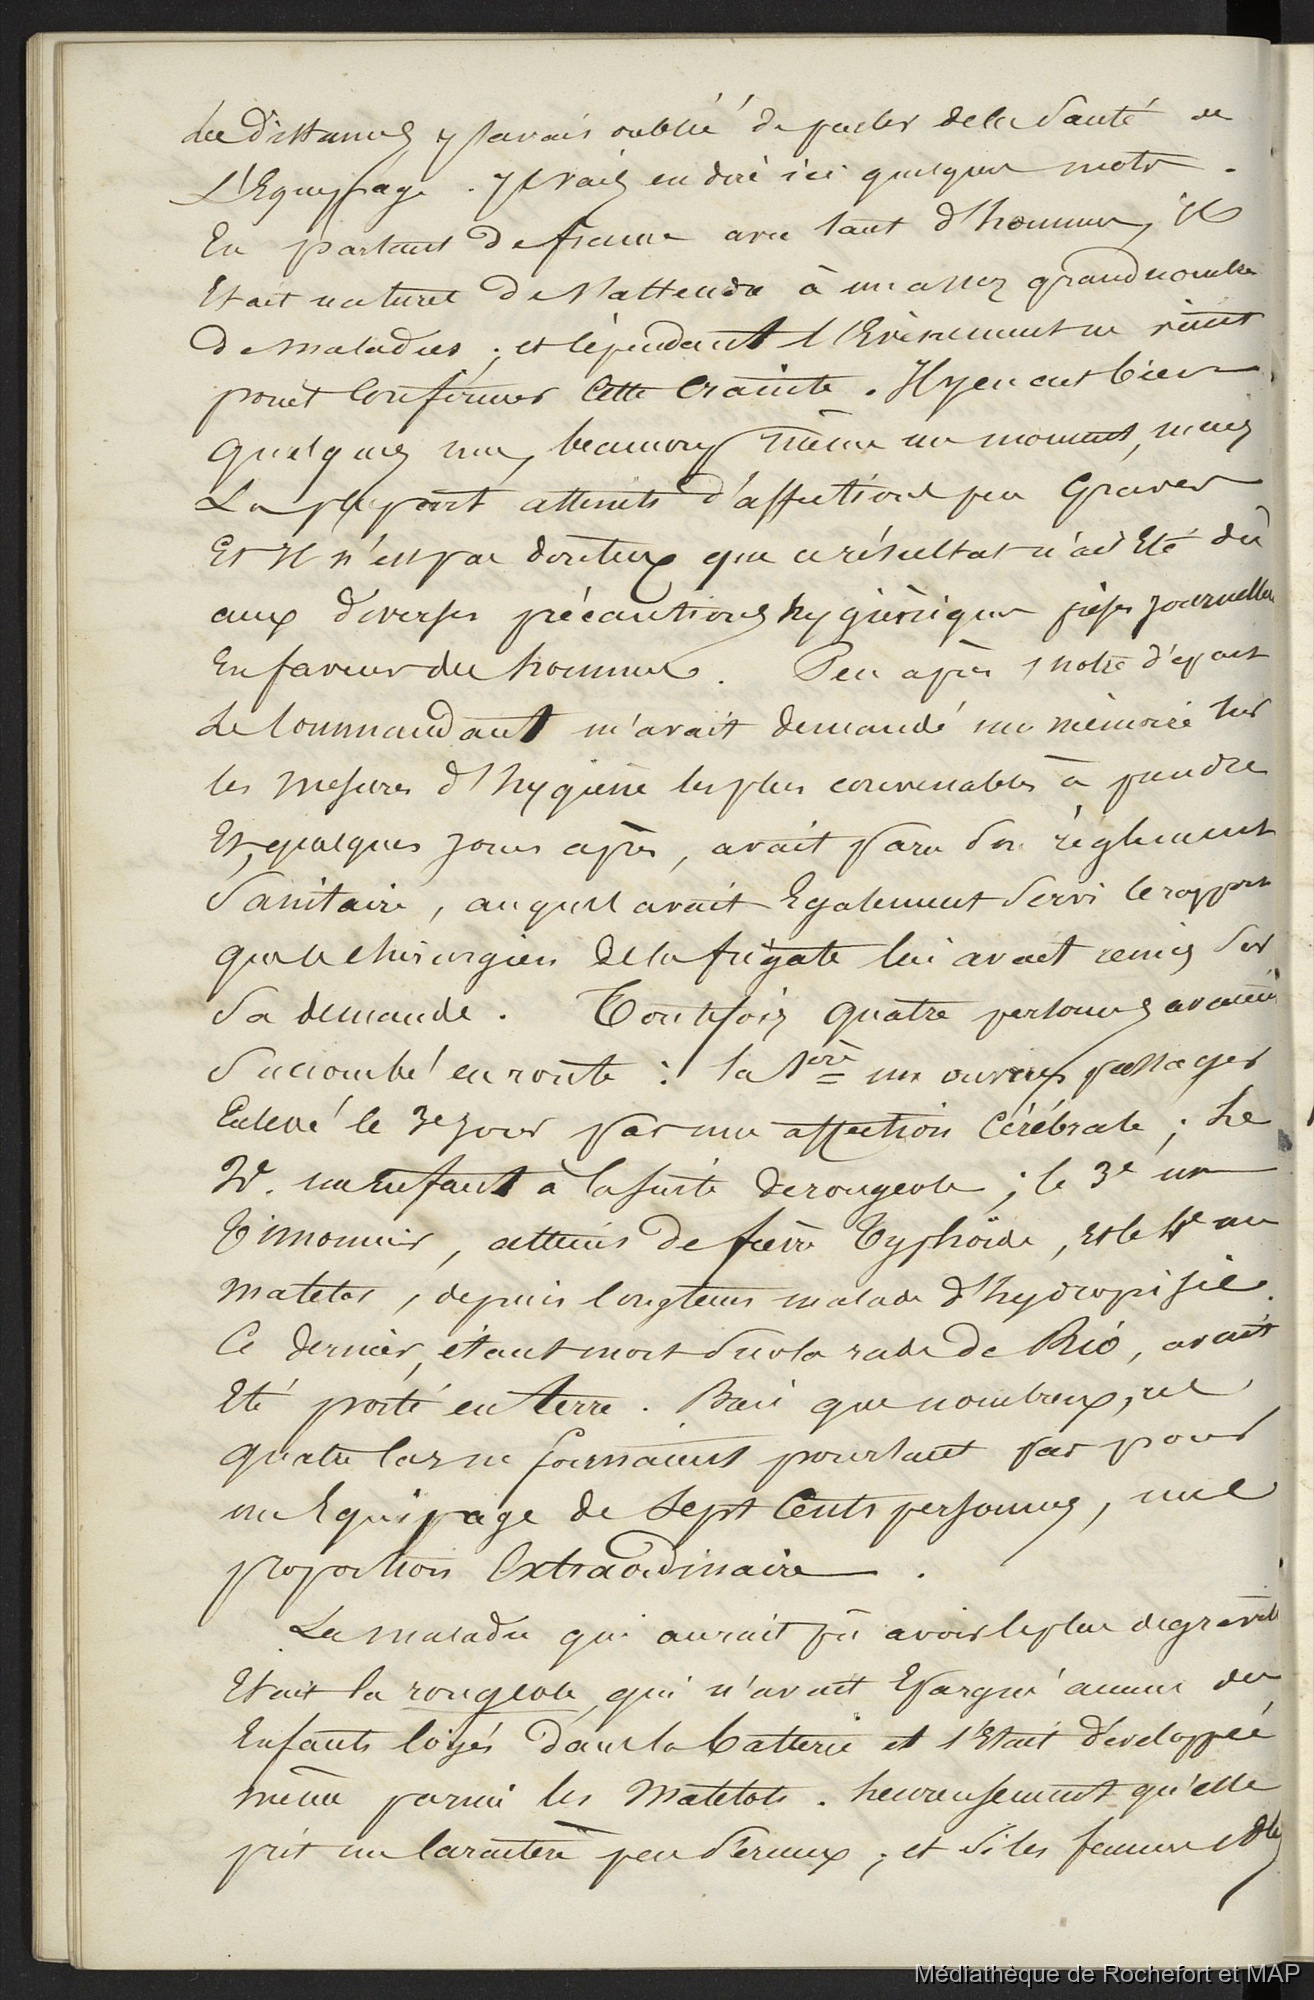 les distances, j'avais oublié de parler de la Santé de
L'Equipage. Je vais en dire ici quelques mots.
En partant de france avec tant d'hommes, il
Etait naturel de s'attendre à un assez grand nombre
de maladies ; et cependant l'Evènement ne vint
point Confirmer Cette Crainte. Il y en eut bien
quelques unes, beaucoup même un moment, mais
La plupart atteints d'affections peu Graves
Et Il n'est pas douteux que ce résultat n'ait Eté dû
aux diverses précautions hygièniques prises journellem
En faveur des hommes. Peu après notre départ
Le Commandant m'avait demandé un mémoire sur
les mesures d'hygiène les plus convenables à prendre
Et, quelques jours après, avait paru son règlement
Sanitaire, auquel avait Egalement Servi le rapport
que le chirurgien de la frégate lui avait remis sur
Sa demande. Toutefois quatre personnes avaient
Succombé en route : la 1ere un ouvrier passager
Enlevé le 3e jour par une affection Cérébrale ; Le
2e. un Enfant à la suite de rougeole ; le 3e un
Timonnier, atteint de fièvre Typhoïde, et le 4e un
matelot, depuis longtems malade d'hydropisie.
Ce dernier, étant mort sur la rade de Rio, avait
Eté porté en terre. Bien que nombreux, ces
quatre Cas ne formaient pourtant pas pour
un Equipage de Sept Cents personnes, une
proportion Extraordinaire.
La maladie qui aurait pu avoir le plus de gravité
Etait la rougeole, qui n'avait Epargné aucun des
Enfants logés dans la batterie et s'Etait développée
même parmi les Matelots. heureusement qu'elle
prit un Caractère peu sérieux ; et si les femmes
Médiathèque de Rochefort et MAP